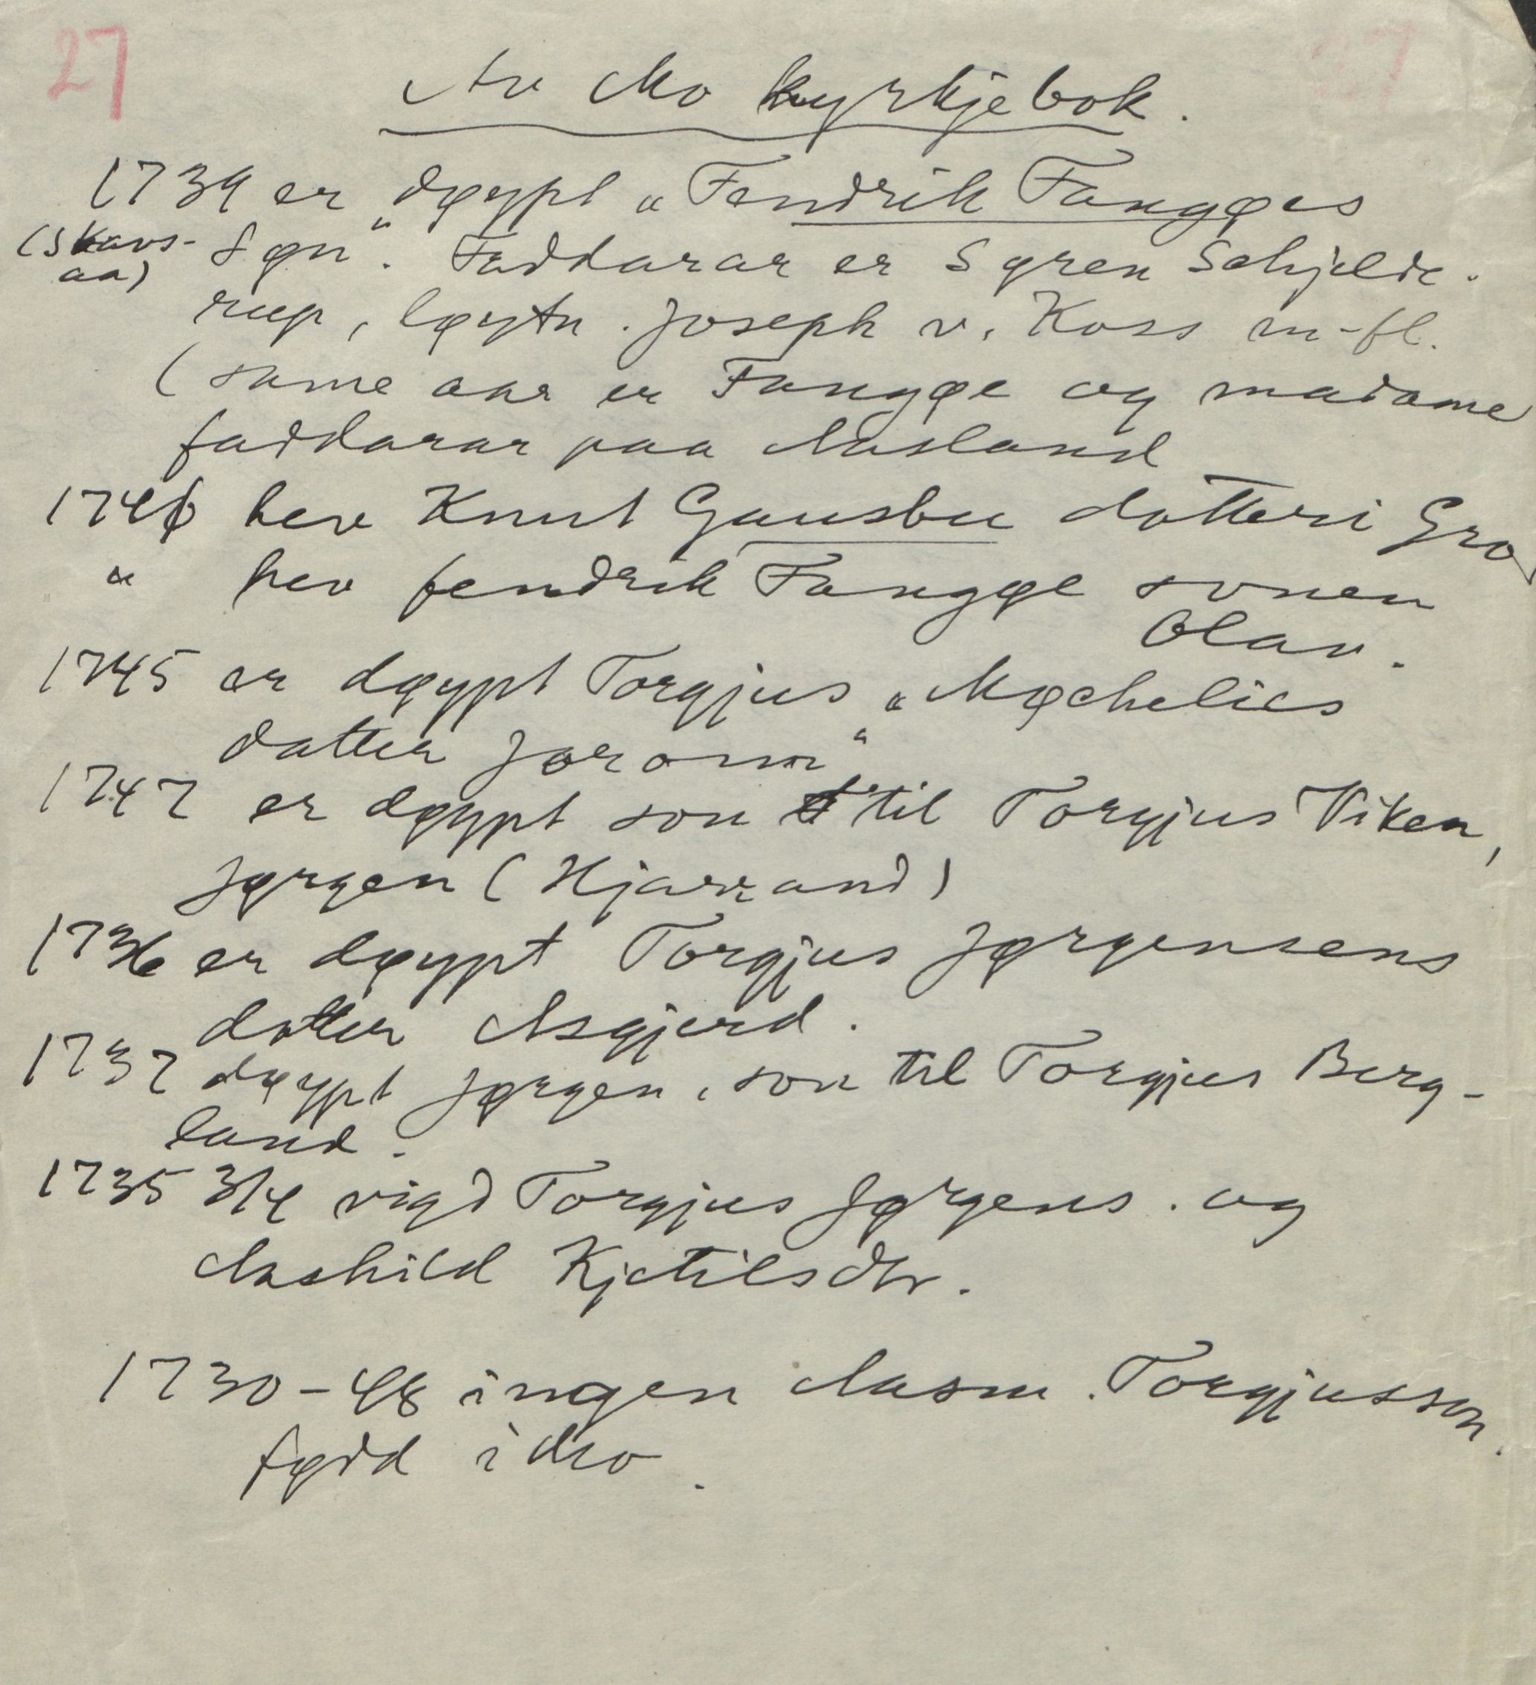 27
Av Mo kyrkjebok.
1739 er døypt „Fendrik Fangøes
(Skavs-
aa)
Søn“. Faddarar er Søren Schjelde-
rup, løytn. Joseph v. Koss m. fl.
(same aar er Fangøe og madame
faddarar paa Aasland
1746 hev Knut Gausbu dotteri Gro
" hev fendrik Fangøe sonen
Olav.
1745 er døypt Torgjus „Møchelies
datter Joronn“
1747 er døypt son til Torgjus Viken,
Jørgen (Hjarrand)
1736 er døypt Torgjus Jørgensens
dotter Asgjerd.
1737 døypt Jørgen, son til Torgjus Berg-
land.
1735 3/4 vigd Torgjus Jørgens. og
Aashild Kjetilsdtr.
1730-48 ingen Aasm. Torgjusson
fødd i Mo.